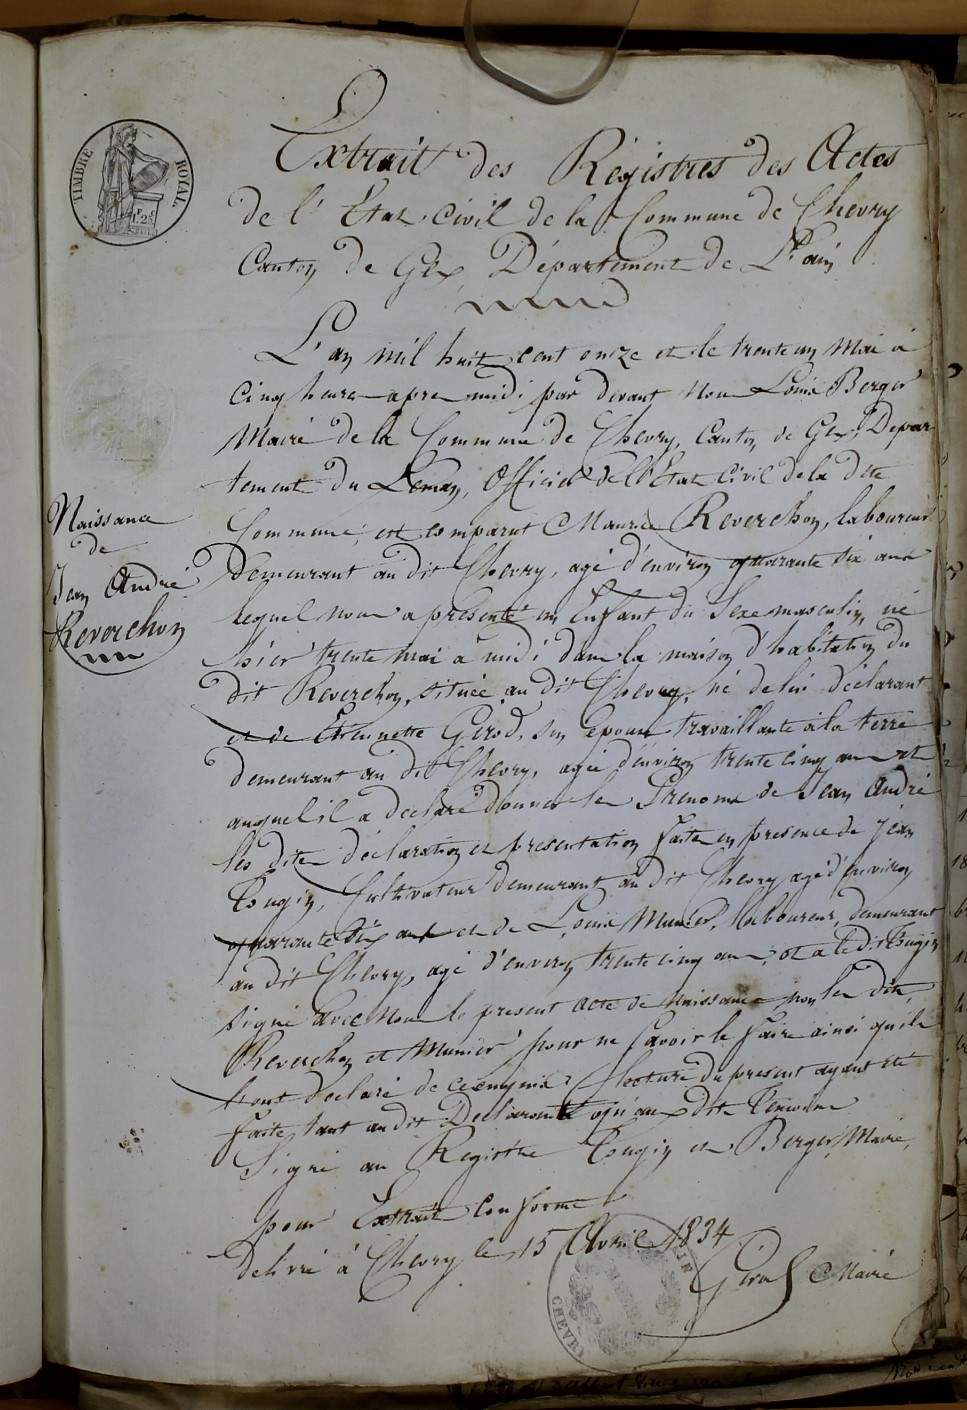 TIMBRE ROYAL
Extrait des Régistres des Actes
de l'État civil de la Commune de Chevry
Canton de Gex, Département de L'ain
L'an mil huit cent onze et le trente un Mai à
cinq heures apre midi par devant Nous Louis Berger
Maire de la Commune de Chevry, Canton de Gex, Depar
tement du Leman, Officier de l'État Civil de la dite
Commune, est comparut Maurice Reverchon, laboureur
Demeurant au dit Chevry, agé d'environ quarante six ans
lequel nous a présenté un Enfant du Sexe masculin, né
hier trente mai à midi dans la maison d'habitation du
dit Reverchon, située au dit Chevry, né de lui déclarant
et de Etiennette Gérod, son épouse travaillante à la terre
demeurant au dit Chevry, agée d'environ trente cinq ans et
auquel il a declaré donner les Prenoms de Jean André
les dites déclaration et presentation faite en presence de Jean
Tugin, Cultivateur demeurant au dit Chevry agé d'environ
quarante six ans et de Louis Munier, laboureur, demeurant
au dit Chevry, agé d'environ trente cinq ans, et a le dit Tugin
signé avec Nous le present acte de naissance non les dits
Reverchon et Munier pour ne savoir le faire ainsi qu'ils
l'ont declaré de ce enquis, lecture du present ayant été
faite, tant au dit Declarant qu'aux dits temoins
Signé au Registre Tugin et Berger, Maire,
pour Extrait conforme
delivré à Chevry le 15 Avril 1834
Girod Maire
CHEVRY
Naissance
de
Jean André
Reverchon